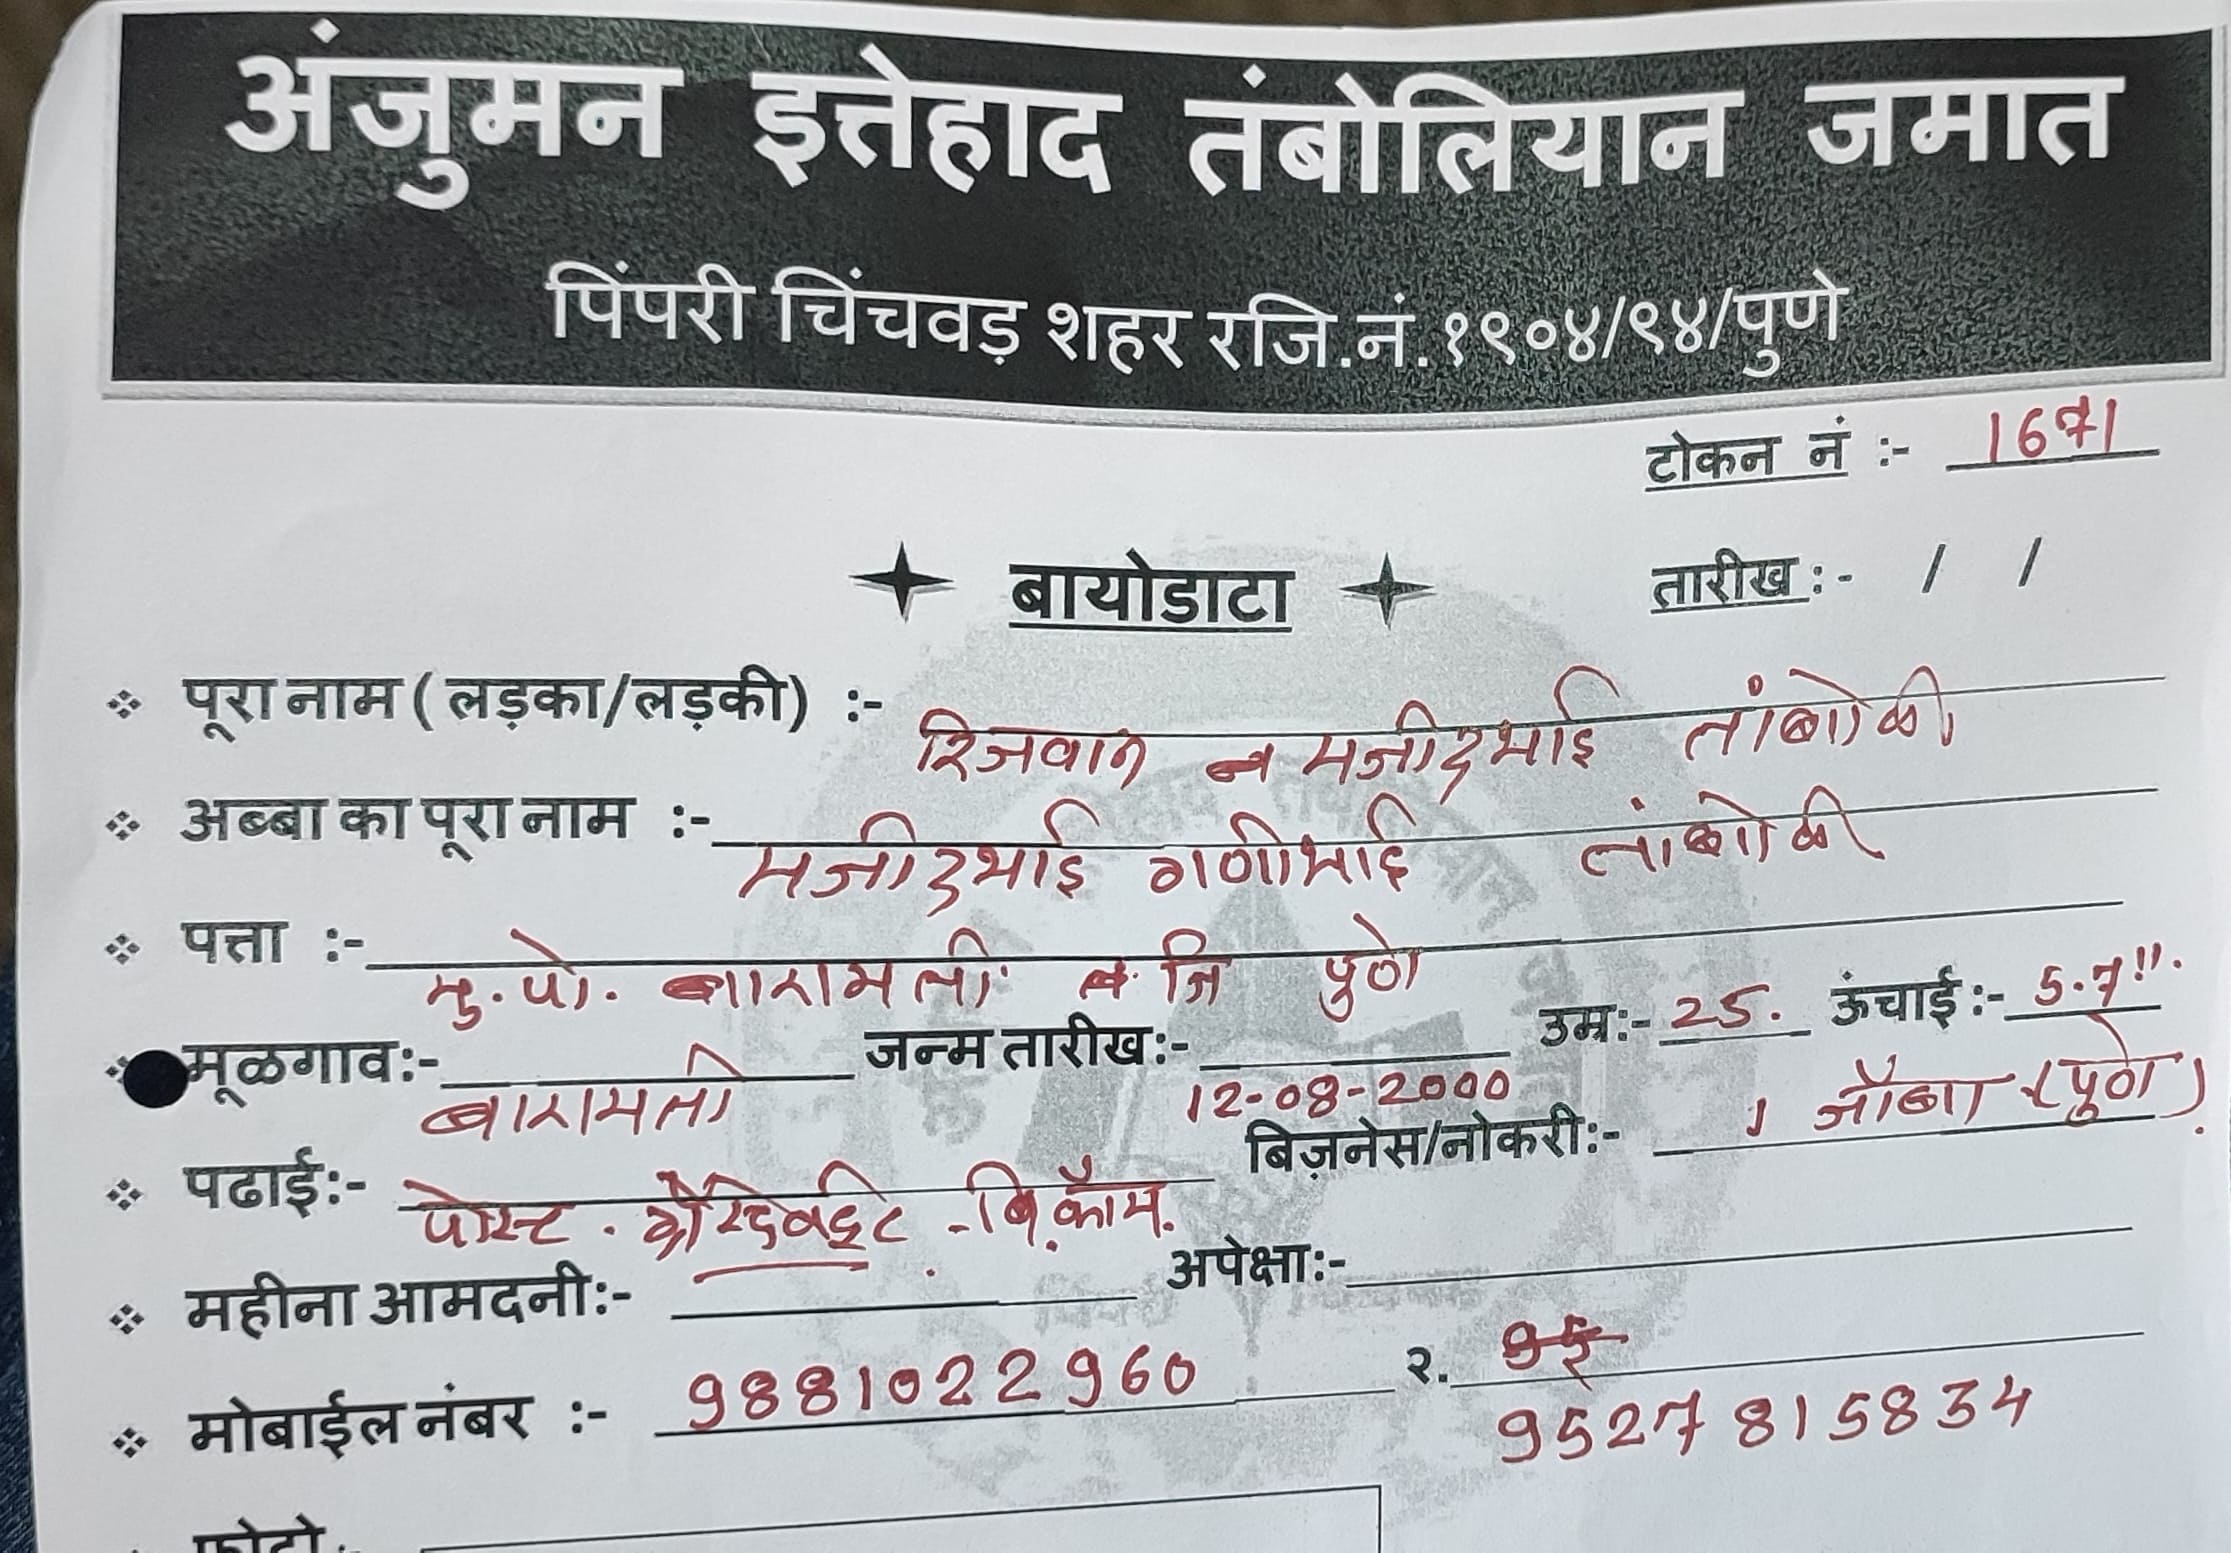 अंजुमन इत्तेहाद तंबोलियान जमात
पिंपरी चिंचवड़ शहर रजि.नं.१९०४/९४/पुणे
टोकन नं :- 1671
बायोडाटा
तारीख :- / /
पूरा नाम ( लड़का/लड़की) :- रिजवान मजीदभाई तांबोळी
अब्बा का पूरा नाम :- मजीदभाई गणीभाई तांबोळी
पत्ता :- मु. पो. बारामती जि पुणे
उम्र:- 25. ऊंचाई :- 5.7".
मूळगाव:- बारामती जन्म तारीख:- 12-08-2000
बिज़नेस/नोकरी:- जॉब (पुणे).
पढाई:- पोस्ट. ग्रॅज्युएट - बि.कॉम.
महीना आमदनी:- अपेक्षा:-
मोबाईल नंबर :- 9881022960 २. 9527815834
फोटो :-